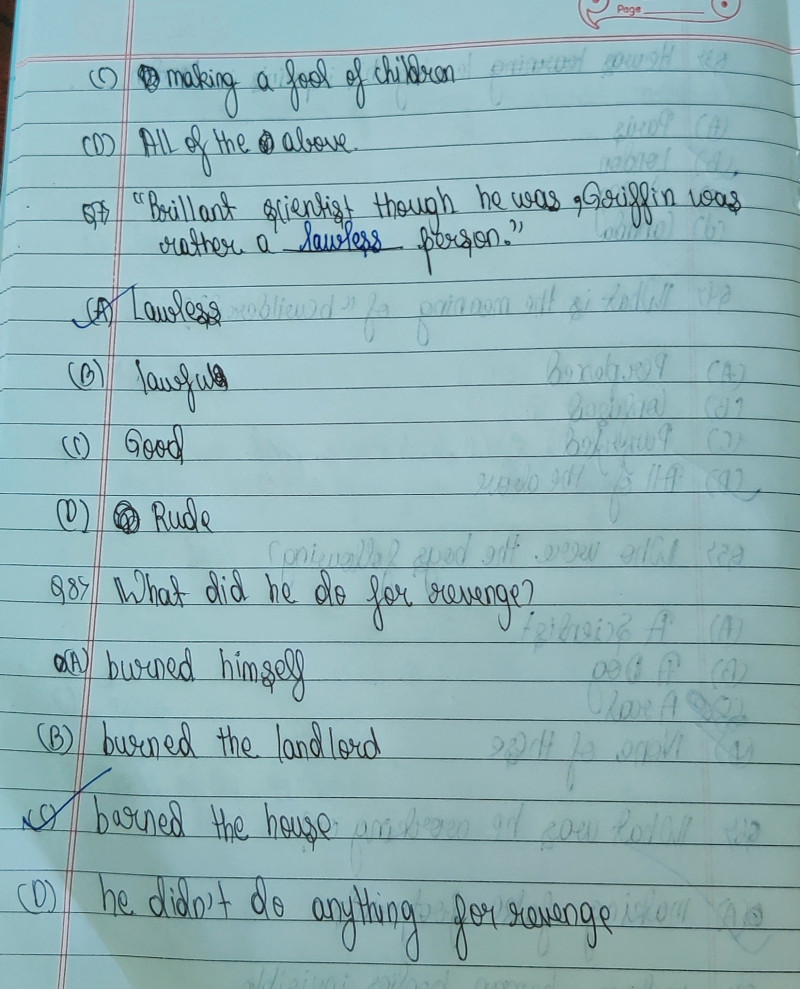 Page
(C) making a fool of children
(D) All of the above.
Q7> "Brillant scientist though he was, Griffin was
rather a lawless person."
(A) Lawless
(B) lawful
(C) Good
(D) Rude
Q8> What did he do for revenge?
(A) burned himself
(B) burned the landlord
(C) barned the house
(D) he didn't do anything for revenge